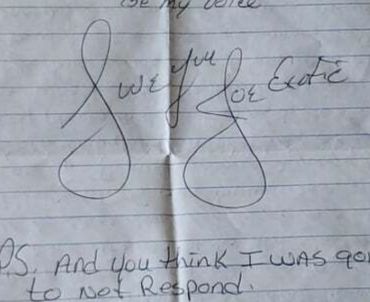 Be my voice
I love you Joe Exotic
P.S. And you think I was go
to Not Respond.